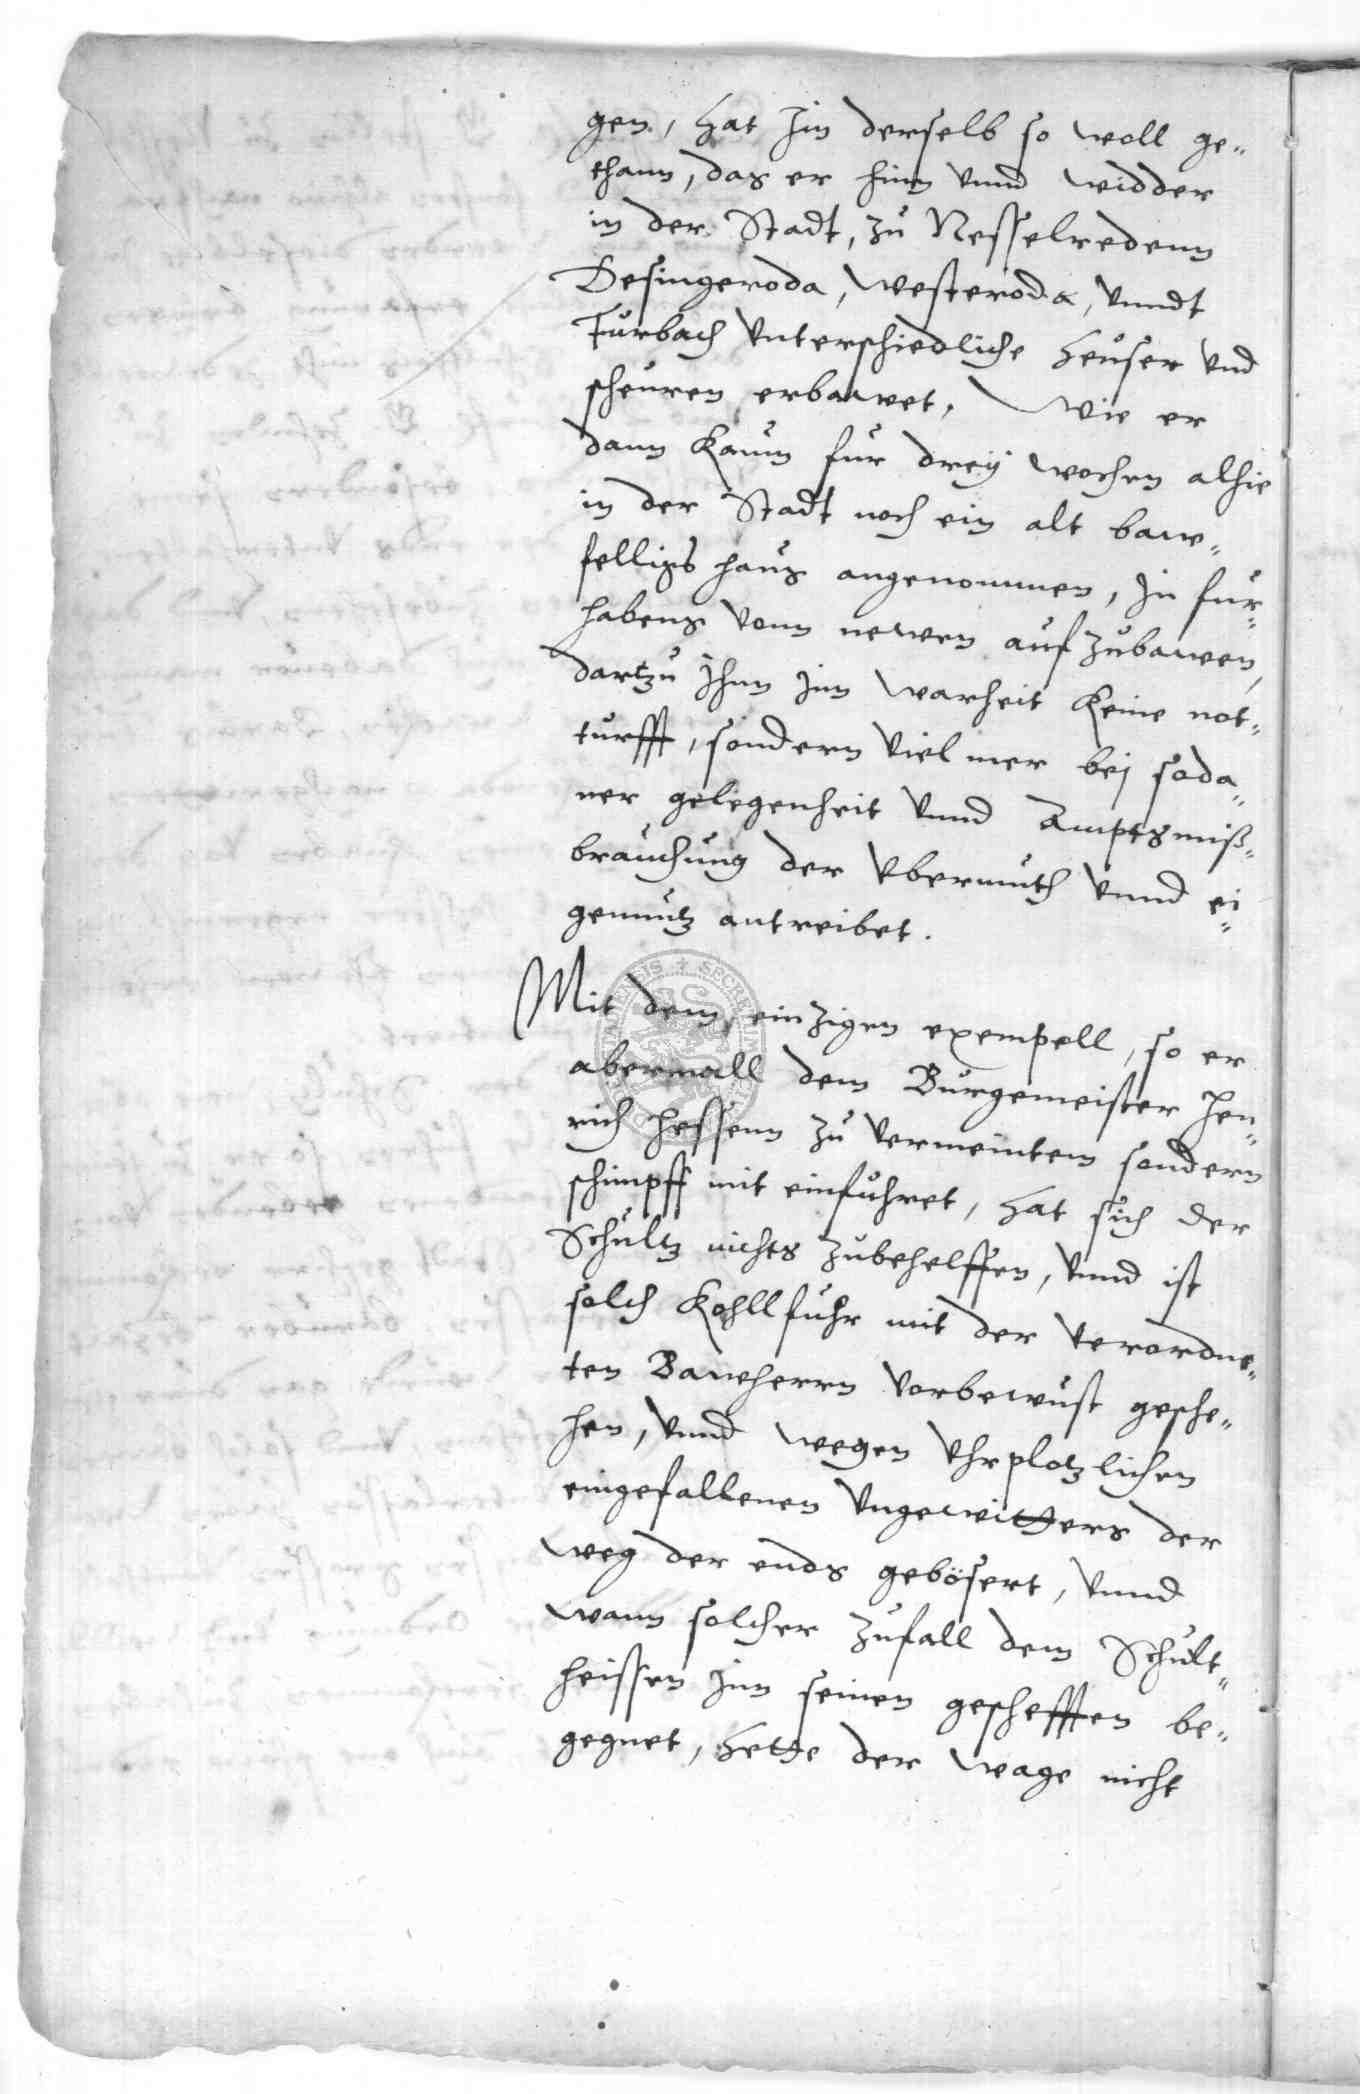 gen, hat Jm derselb so woll ge-
thann, das er hinn vnnd widder
in der Stadt, zu Nesselredenn
Desingeroda, Westeroda, vnndt
Furbach vnterschiedliche heuser vnd
scheuren erbawet, Wie er
dann kaum fur dreÿ wochen alhie
in der Stadt noch ein alt baw-
felligs haus angenommen, in fur-
habens vonn newen auf zubawen,
dartzu Jhnn Jnn warheit keine not-
turfft, sondern viel mer bej soda-
ner gelegenheit vnnd Amptsmiß-
brauchung der vbermuth vnnd ei-
gennutz antreibet.
Mit dem einzigen exempell, so er
abermall dem Burgemeister Hen-
rich Hessenn zu vermeintem sondern
schimpff mit einfuhret, hat sich der
Schultz nichts zubehelffen, vnnd ist
solch Kohllfuhr mit der verordne-
ten Bawherrn vorbewust gesche-
hen, vnnd wegen vhrplotzlichen
eingefallenen vngewitters der
weg der ends gebösert, vnnd
wann solcher zufall dem Schult-
heissen Jnn seinen geschefften be-
gegnet, hette der wage nicht